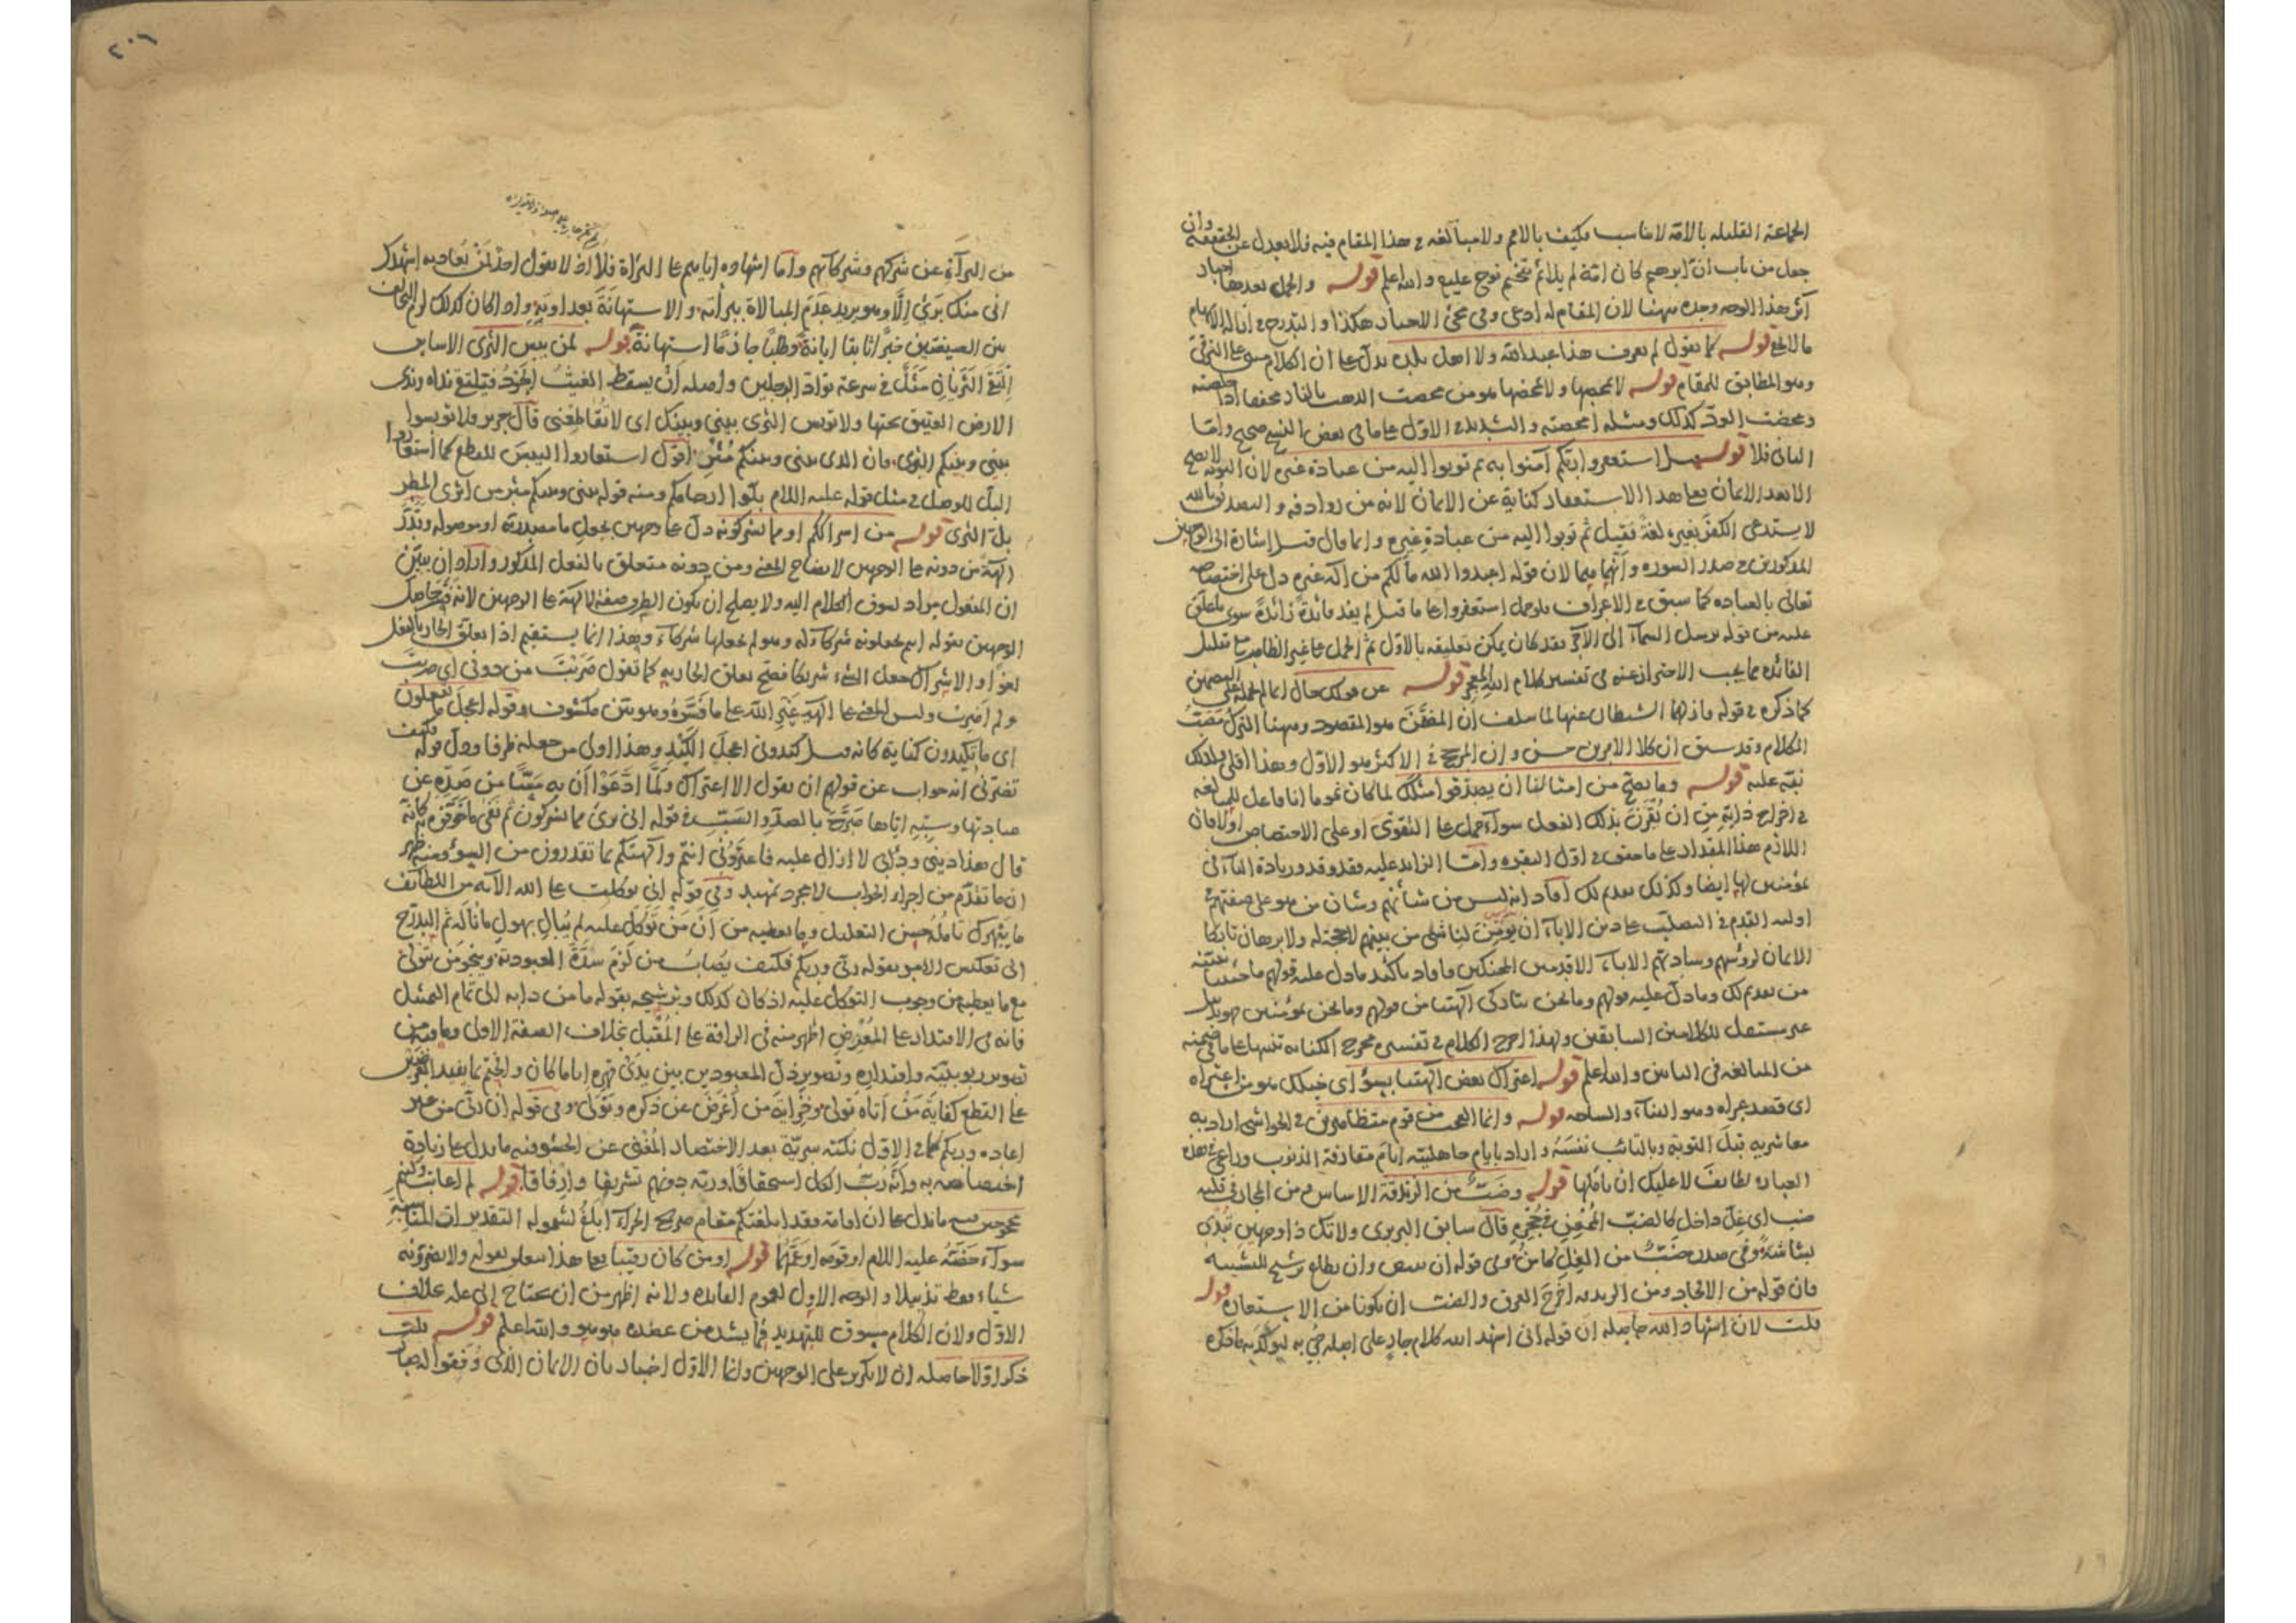 الجماعة القليلة بالامة لا يناسب فكيف بالامم ولا مبالغة في هذا المقام فيه فلا يعدل عن الحقيقة وان
جعل من باب ان ابرهيم كان امة لم يلائم تفخيم نوح عليه والله اعلم قوله والجمل بعدها اخبار
آثر هذا الوجه وحده ههنا لان المقام له ادعى وفي مجئ الاخبار هكذا والتدرج في
قوله كما يقول لم يعرف هذا عبد الله ولا اهل بلده يدل على ان الكلام مبنى على الترقى
وهو المطابق للمقام قوله لا تمحضها ولا تمحصها هو من محصت الذهب بالنار
ومحضت الود كذلك ومثله امحضته والتشديد في الاول على ما في بعض النسخ صحيح واما
الثانى فلا قوله قيل استغفروا ربكم آمنوا به ثم توبوا اليه من عبادة غيره لان التوبة لا تصح
الا بعد الايمان فعلى هذا الاستغفار كناية عن الايمان لانه من روادفه والتصديق بالله
لا يستدعى الكفر بغيره لغة فقيل ثم توبوا اليه من عبادة غيره وانما قال قيل اشارة الى الوجهين
المذكورين في صدر السورة وانهما هما لان قوله اعبدوا الله ما لكم من اله غيره دل على اختصاصه
تعالى بالعبادة كما سبق في الاعراف فلو حمل استغفروا على ما قيل لم يفد فائدة زائدة سوى ما علق
عليه من قوله يرسل السماء الى الآخر فقد كان يمكن تعليقه بالاول ثم الحمل على غير الظاهر مع تقليل
الفائدة مما يجب الاحتراز عنه في تفسير كلام الله المعجز قوله عن قولك حال
كما ذكره في قوله فازلهما الشيطان عنها لما سلف ان المضمن هو المقصود وههنا الترك مصب
الكلام وقد سبق ان كلا الامرين حسن وان المرجح في الاكثر هو الاول وهذا اقلى فلذلك
نبه عليه قوله وما يصح من امثالنا ان يصدقوا مثلك لما كان نحو ما انا فاعل للمبالغة
في اخراج ذاته من ان تقرن بذلك الفعل سواء حمل على التقوى او على الاختصاص
اللازم هذا المقدار على ما حقق في اول البقرة واما الزائد عليه فقد وقد وزيادة الباء في
بمؤمنين لها ايضا وكذلك تقديم لك افاد انه ليس من شأنهم وشأن من هو على صفتهم
التصلب على دين الاباء ان يؤمن لناشئ من بينهم لا حجة له ولا برهان تاركا
الايمان لرؤسهم وسادتهم الاباء الاقدمين المحنكين وافاد تاكيد ما دل عليه قولهم ما جئتنا ببينة
من تقديم لك وما دل عليه قولهم وما نحن بتاركى آلهتنا من قولهم وما نحن بمؤمنين
غير مستقل للكلامين السابقين ولهذا اخرج الكلام في تفسيره مخرج الكناية تنبيها على ما في ضمنه
من المبالغة في الياس والله اعلم قوله اعتراك بعض آلهتنا بسوء اى خبلك هو من اعتراه
اى قصد عراه وهو الفناء والساحة قوله وانما العجب من قوم متظاهرين في الحواشى اراد به
معاشريه قبل التوبة وبالتائب نفسه واراد بايام جاهليته ايام مقارفة الذنوب وراعى في هذه
العبارة لطائف لا عليك ان تاملها قوله وضب من الزندقة الاساس ومن المجاز في قلبه
ضب اى غل داخل كالضب الممعن في جحره قال سابق البربرى ولا تك ذا وجهين تبدى
بشاشة وفى صدره ضب من الغل كامن وفى قوله ان وان يطلع ترشيح للتشبيه
فان قوله من الالحاد ومن الزندقة اخرج العرق والضب ان يكونا من الاستعارة قوله
قلت لان اشهاد الله حاصله ان قوله انى اشهد الله كلام جار على اصله جئ به ليؤكد به ما ذكره
من البرآة عن شركهم وشركآئهم واما اشهاده اياهم على البرآة فلا اذ لا يقول احد لمن يعاديه اشهدك
انى منك برئ الا وهو يريد عدم المبالاة ببرآته والاستهانة بعداوته واذا كان كذلك لزم التخالف
بين الصيغتين خبرا ثابتا ابانة وطلبا جازما استهانة قوله لمن يبس الثرى الاساس
التقى الثريان مثل في سرعة تواد الرجلين واصله ان يسقط الغيث الجود فيلتقى نداه وندى
الارض العتيق تحتها ولا توبس الثرى بينى وبينك اى لا تقاطعنى قال جرير ولا توبسوا
بينى وبينكم الثرى فان الذى بينى وبينكم مثرى اقول استعاروا اليبس للقطع كما استعاروا
البل للوصل في مثل قوله عليه السلام بلوا ارحامكم ومنه قوله بينى وبينكم مثر من اثرى المطر
بل الثرى قوله من اشراككم او مما تشركونه دل على وجهين بجعل ما مصدرية او موصولة وقدر
آلهة من دونه على الوجهين لايضاح المعنى ومن دونه متعلق بالفعل المذكور واراد ان يبين
ان المفعول مراد لسوق الكلام اليه ولا يصلح ان يكون الظرف صفة لآلهة على الوجهين
الوجهين بقوله انتم تجعلونه شركآء له وهو لم يجعلها شركآء وهذا انما يستقيم اذا تعلق الجار بالفعل
لغوا والاشراك جعل الشئ شريكا فصح تعلق الجار به كما تقول ضربت من دونى اى ضربت
ولم اضرب وليس المعنى على آلهة غير الله على ما فسروه وهو بين مكشوف وقوله اعجل ما تفعلون
اى ما تكيدون كناية كانه قيل كيدونى اعجل الكيد وهذا اولى من جعله ظرفا ودل قوله فكيف
تضرنى انه جواب عن قولهم ان نقول الا اعتراك ولما ادعوا ان به مسا من صده عن
عبادتها وسبه اياها صرح بالصد والسب في قوله انى برئ مما تشركون ثم نفى ما خوفوه به كانه
قال هذا دينى ودابى لا ازال عليه فاعترونى انتم وآلهتكم بما تقدرون من السوء ومنه ظهر
ان ما تقدم من اجزاء الجواب لا مجرد تمهيد وفي قوله انى توكلت على الله الآية من اللطائف
ما يبهرك تامله حسن التعليل وما يعطيه من ان من توكل عليه لم يبال بهول ما ناله ثم التدرج
الى تعكيس الامر بقوله ربى وربكم فكيف يصاب من لزم سدة العبودية وينجو من تولى
مع ما يعطيه من وجوب التوكل عليه اذ كان كذلك وترشيحه بقوله ما من دابة الى تمام التمثيل
فانه في الاقتدار على المعرض اظهر منه في الرافة على المقبل بخلاف الصفة الاولى وما فيه من
تصوير ربوبيته واقتداره وتصوير ذل المعبودين بين يدى قهره ايا ما كان والختم بما يفيد
على القطع كفاية من اتاه تولى وخزاية من اعرض عن ذكره وتولى وفى قوله ان ربى من غير
اعادة وربكم كما في الاول نكتة سرية بعد الاختصار المغنى عن الحشو فيه ما يدل على زيادة
اختصاصه به وانه رب الكل استحقاقا وربه دونهم تشريفا وارفاقا قوله لم اعاتب
ما يدل على ان اقامة فقد ابلغتكم مقام صريح الجزآء ابلغ لشموله التقديرات المناسبة
سوآء خصته عليه السلام او قومه او عمهما قوله او من كان رقيبا فعلى هذا يتعلق بقوله ولا تضرونه
شياء فقط تذييلا والوجه الاول لعموم الفائدة ولانه اظهر من ان يحتاج الى علة بخلاف
الاول ولان الكلام مسوق للتهديد فما يشد من عضده هو هو والله اعلم قوله قلت
ذكر اولا حاصله ان لا تكرير على الوجهين وانما الاول اخبار بان الايمان الذى وفقوا له صار